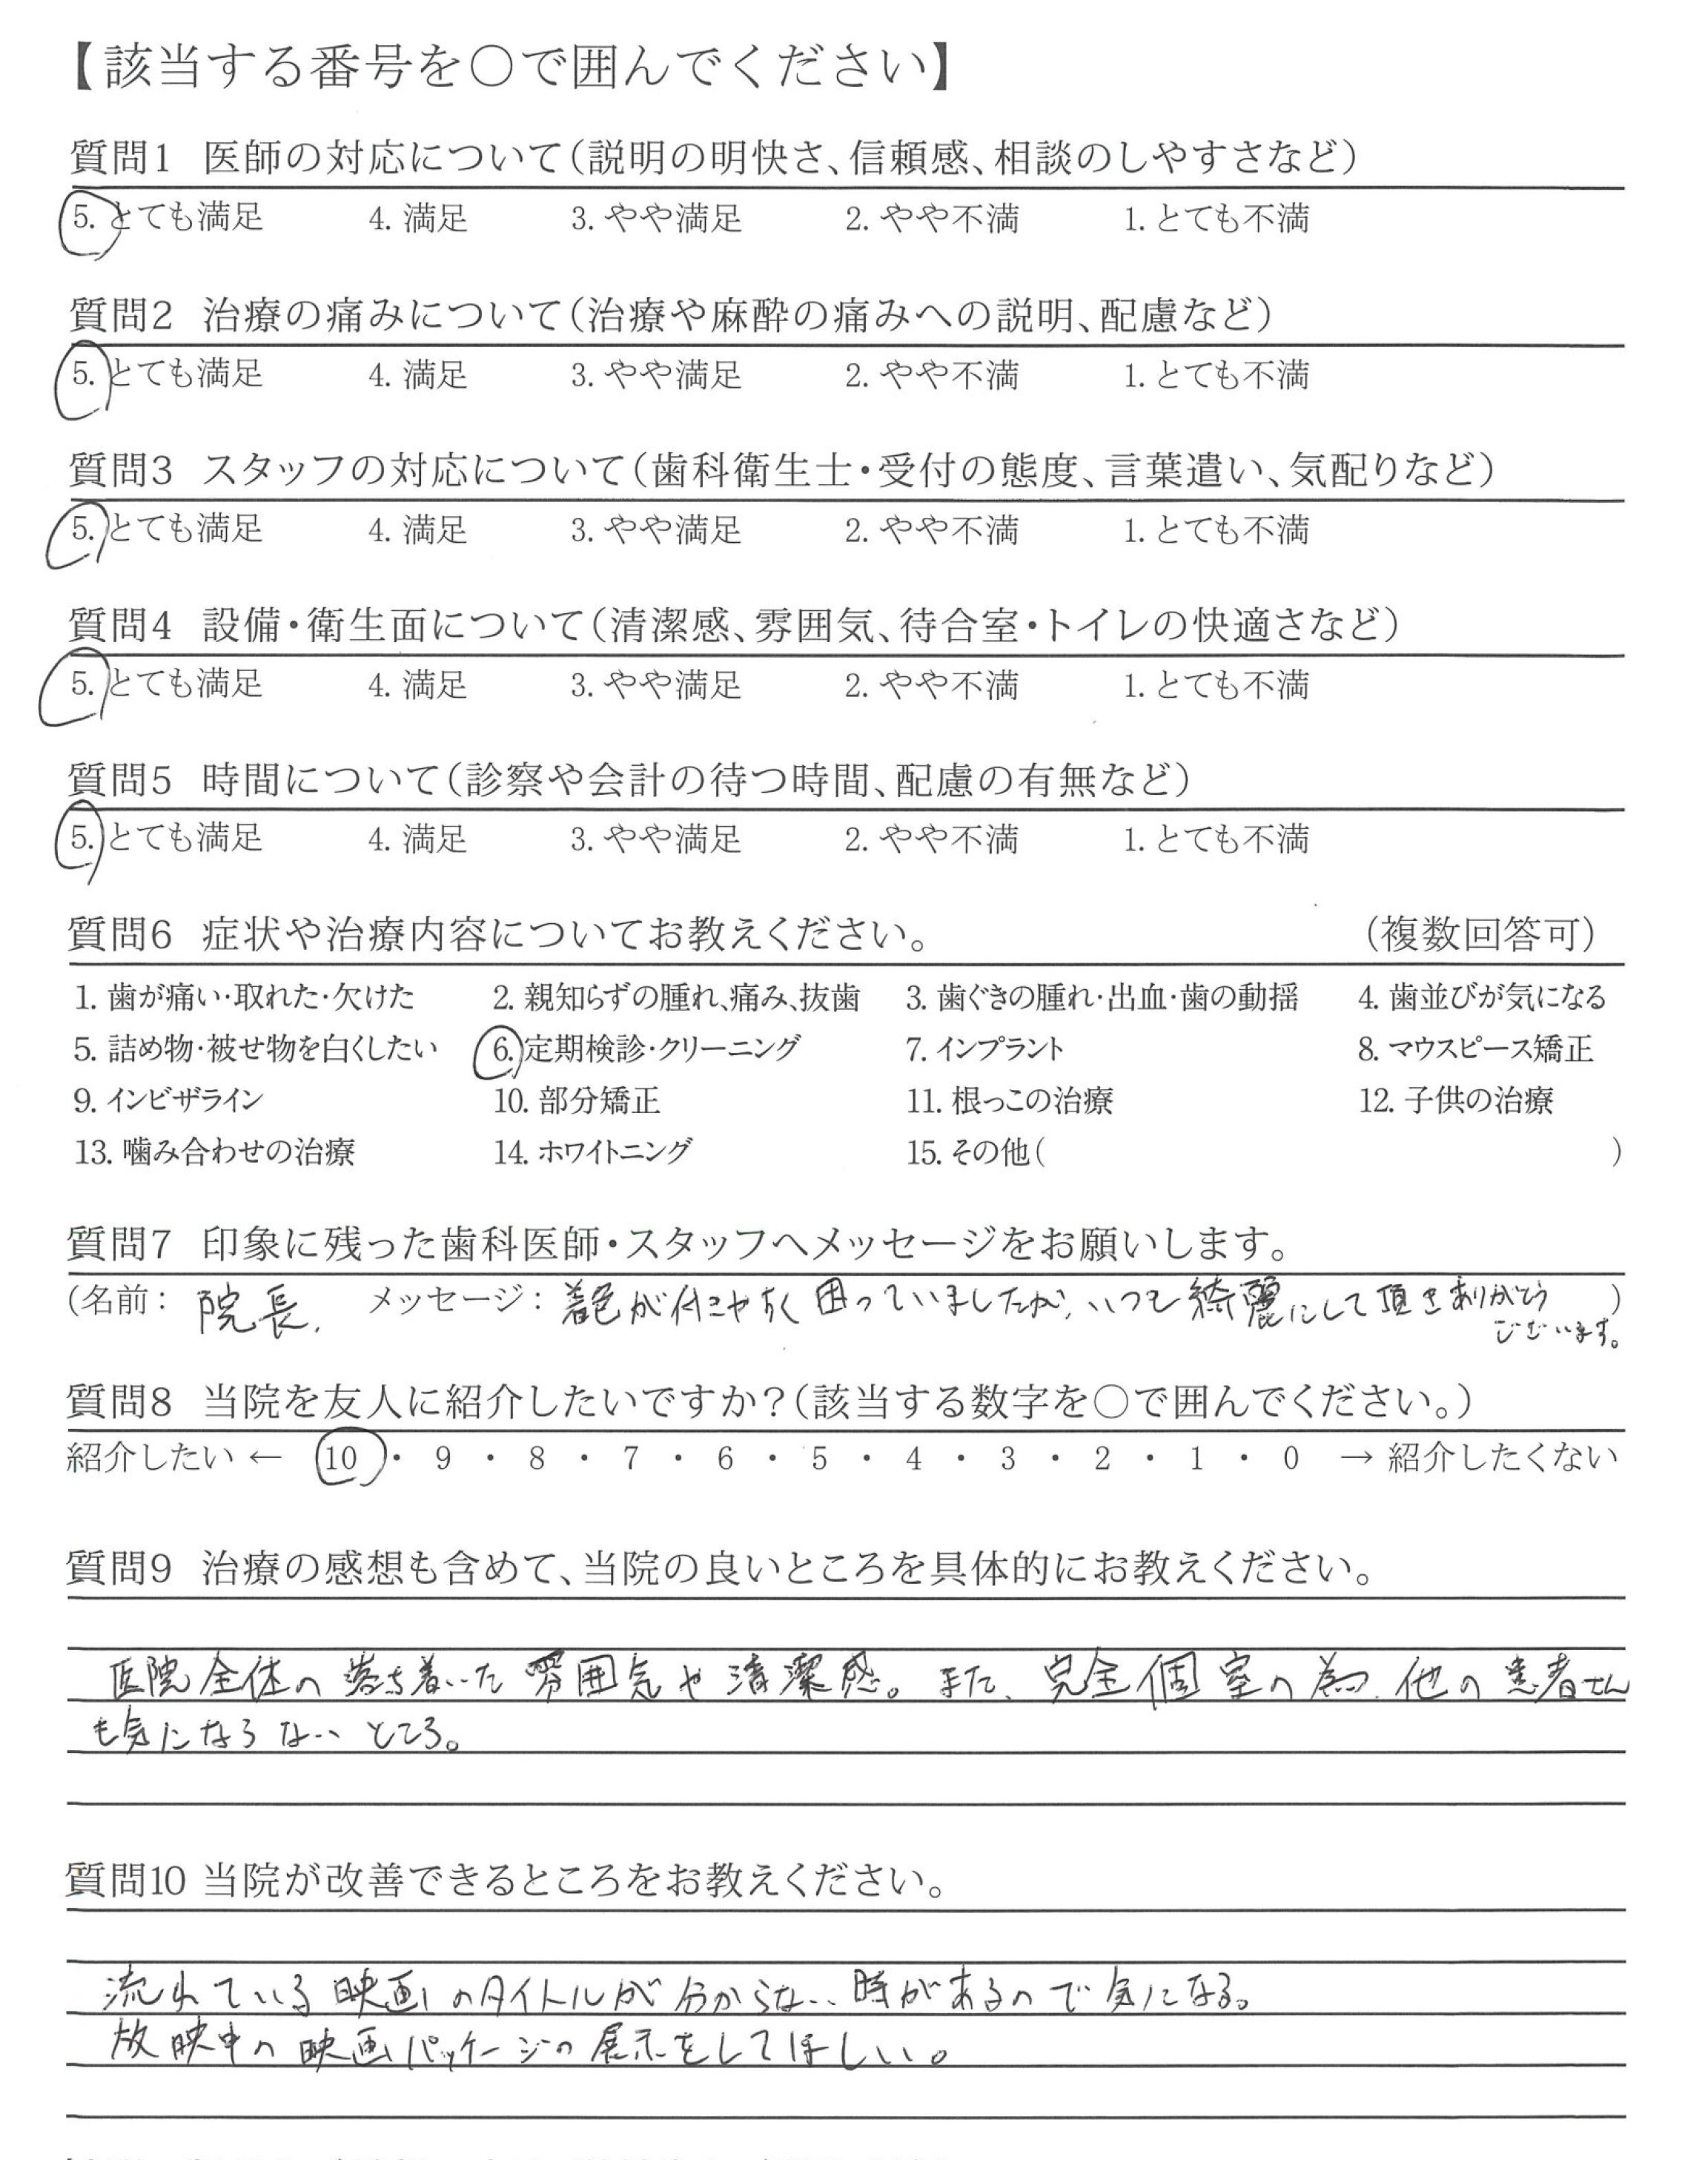 【該当する番号を○で囲んでください】
質問1 医師の対応について(説明の明快さ、信頼感、相談のしやすさなど)
5. とても満足 4. 満足 3. やや満足 2. やや不満 1. とても不満
質問2 治療の痛みについて(治療や麻酔の痛みへの説明、配慮など)
5. とても満足 4. 満足 3. やや満足 2. やや不満 1. とても不満
質問3 スタッフの対応について(歯科衛生士・受付の態度、言葉遣い、気配りなど)
5. とても満足 4. 満足 3. やや満足 2. やや不満 1. とても不満
質問4 設備・衛生面について(清潔感、雰囲気、待合室・トイレの快適さなど)
5. とても満足 4. 満足 3. やや満足 2. やや不満 1. とても不満
質問5 時間について(診察や会計の待つ時間、配慮の有無など)
5. とても満足 4. 満足 3. やや満足 2. やや不満 1. とても不満
質問6 症状や治療内容についてお教えください。 (複数回答可)
1. 歯が痛い・取れた・欠けた 2. 親知らずの腫れ、痛み、抜歯 3. 歯ぐきの腫れ・出血・歯の動揺 4. 歯並びが気になる
5. 詰め物・被せ物を白くしたい 6. 定期検診・クリーニング 7. インプラント 8. マウスピース矯正
9. インビザライン 10. 部分矯正 11. 根っこの治療 12. 子供の治療
13. 噛み合わせの治療 14. ホワイトニング 15. その他( )
質問7 印象に残った歯科医師・スタッフへメッセージをお願いします。
(名前: 院長. メッセージ: 着色が付きやすく困っていましたが、いつも綺麗にして頂きありがとう )
ございます。
質問8 当院を友人に紹介したいですか?(該当する数字を○で囲んでください。)
紹介したい ← 10 ・ 9 ・ 8 ・ 7 ・ 6 ・ 5 ・ 4 ・ 3 ・ 2 ・ 1 ・ 0 → 紹介したくない
質問9 治療の感想も含めて、当院の良いところを具体的にお教えください。
医院全体の落ち着いた雰囲気や清潔感。また、完全個室の為、他の患者さん
も気にならないところ。
質問10 当院が改善できるところをお教えください。
流れている映画のタイトルが分からない時があるので気になる。
放映中の映画パッケージの展示をしてほしい。